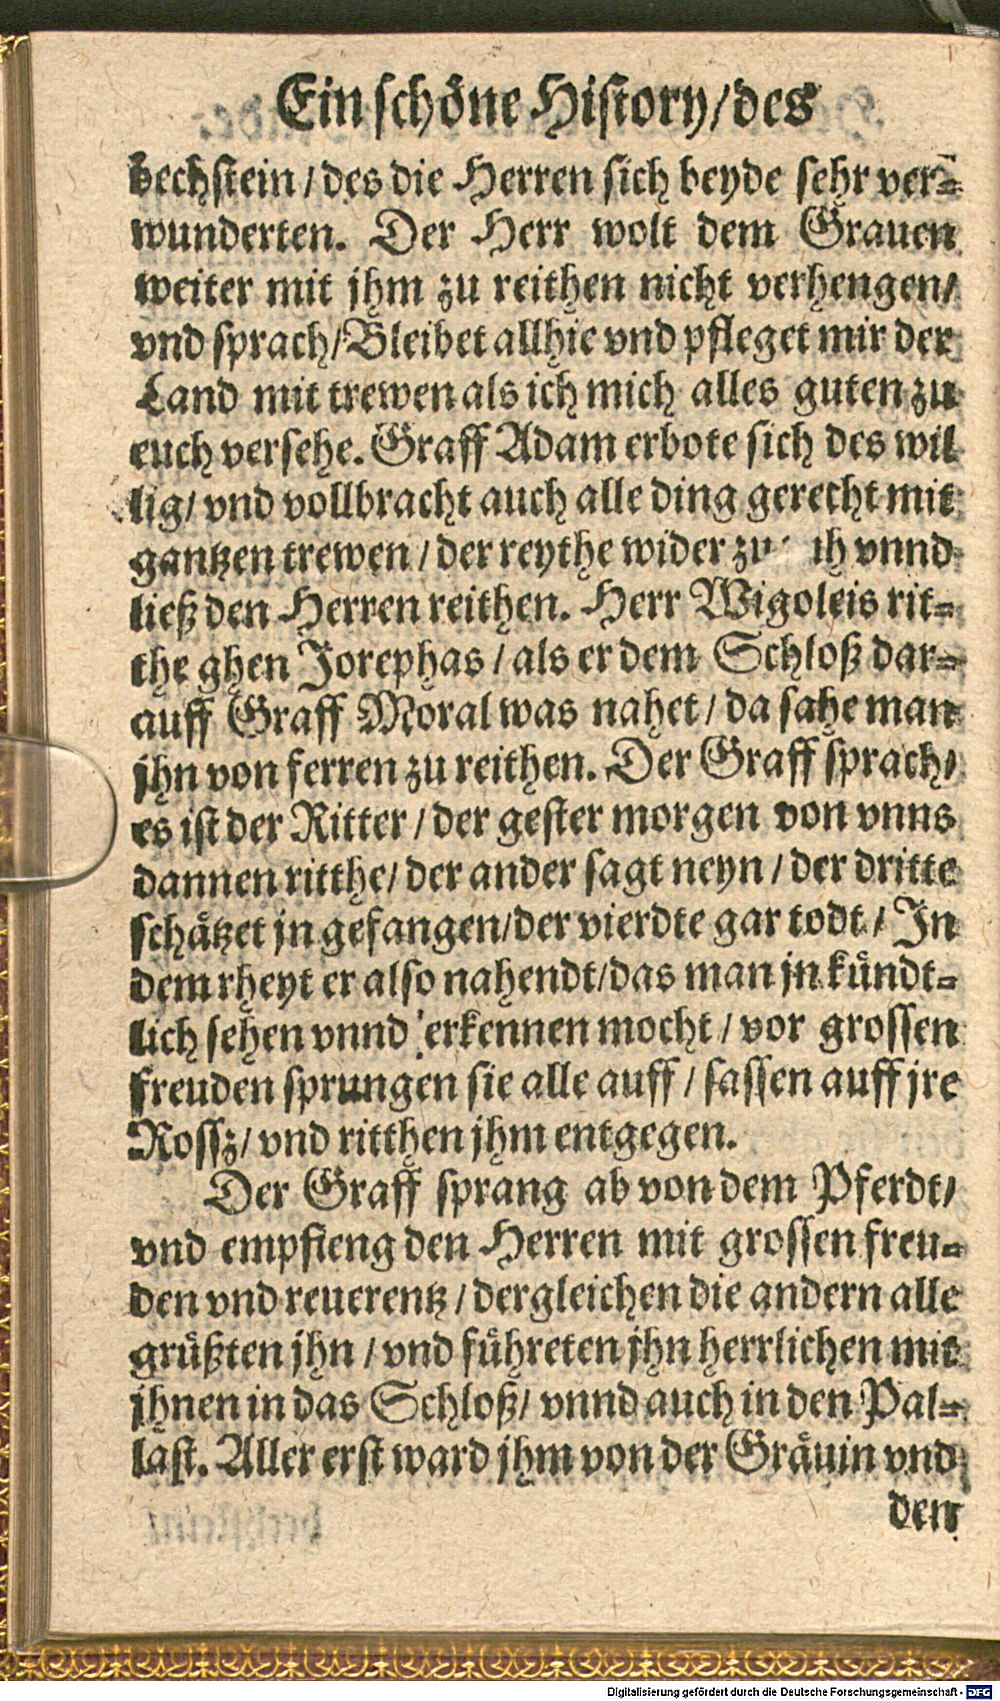 Ein schöne History/des
bechstein/ des die Herren sich beyde sehr ver-
wunderten. Der Herr wolt dem Grauen
weiter mit jhm zu reithen nicht verhengen/
vnd sprach/Bleibet allhie vnd pfleget mir der
Land mit trewen als ich mich alles guten zu
euch versehe. Graff Adam erbote sich des wil
lig/ vnd vollbracht auch alle ding gerecht mit
gantzen trewen/ der reythe wider vnnd
ließ den Herren reithen. Herr Wigoleis rit-
the ghen Jorephas/ als er dem Schloß dar-
auff Graff Moral was nahet/ da sahe man
jhn von ferren zu reithen. Der Graff sprach/
es ist der Ritter/ der gester morgen von vnns
dannen ritthe/ der ander sagt neyn/ der dritte
schätzet jn gefangen/der vierdte gar todt/ In
dem rheyt er also nahendt/das man jn kündt-
lich sehen vnnd erkennen mocht/ vor grossen
freuden sprungen sie alle auff/ sassen auff jre
Rossz/ vnd ritthen jhm entgegen.
Der Graff sprang ab von dem Pferdt/
vnd empfieng den Herren mit grossen freu-
den vnd reuerentz/ dergleichen die andern alle
grüßten jhn/ vnd führeten jhn herrlichen mit
jhnen in das Schloß/ vnnd auch in den Pal-
last. Aller erst ward jhm von der Gräuin vnd
den
Digitalisierung gefördert durch die Deutsche Forschungsgemeinschaft - DFG